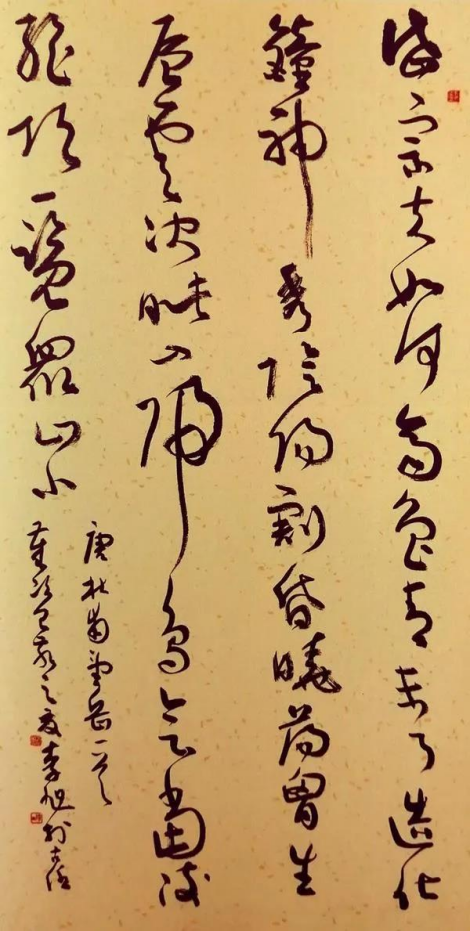 岱宗夫如何齊魯青未了造化
鐘神秀陰陽割昏曉蕩胸生
層雲決眦入歸鳥會當凌
絕頂一覽眾山小
唐杜甫望岳一首
之夏李旭